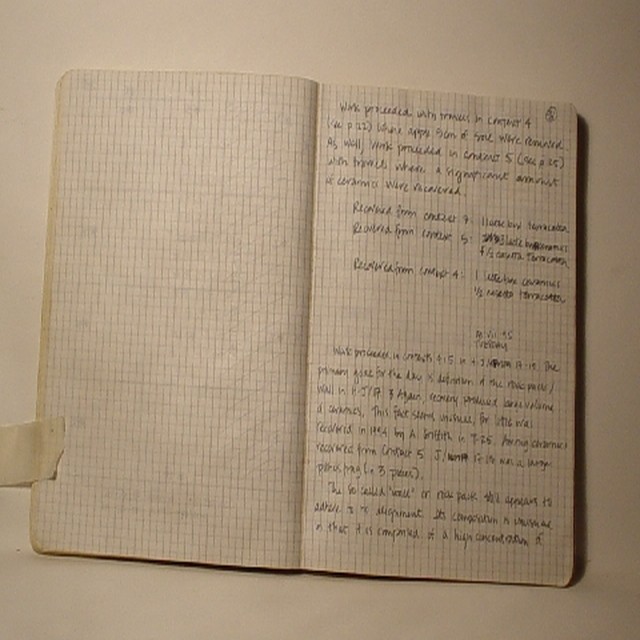 Work proceeded with trowels in context 4
(see p 22) where appx 5cm of soil were removed.
As well, work proceeded in context 5 (see p 25)
with trowels where a significant amount
of ceramics were recovered.
Recovered from context 7: 1 latte box terracotta
Recovered from context 5: latte box ceramics
1/2 casetta terracotta
Recovered from context 4: 1 latte box ceramics
1/2 casetta terracotta
Tuesday
Work proceeded in contexts 4+5 in H-J/ 17-19. The
primary goal for the day is definition of the rock pack/
wall in H-J/17. Again, recovery produced large volume
of ceramics. This fact seems unusual, for little was
recovered in 1994 by A. Griffith in T-25. Among ceramics
recovered from context 5 J/ 17 was a large
piece (frag in 3 pieces).
The so called "wall" or rock pack still appears to
adhere to its alignment. Its composition is unusual
in that it is comprised of a high concentration of